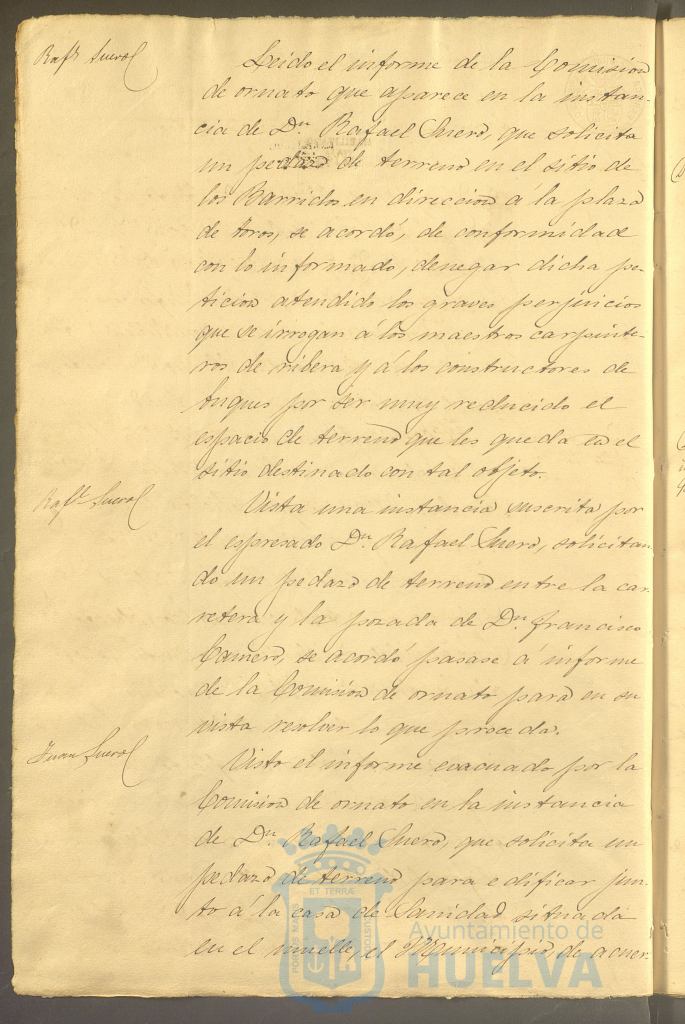 Raf.l Suero
Leido el informe de la Comision
de ornato que aparece en la instan-
cia de D.n Rafael Suero, que solicita
un pedazo de terreno en el sitio de
los Barridos en direccion á la plaza
de toros, se acordó, de conformidad
con lo informado, denegar dicha pe-
ticion atendido los graves perjuicios
que se irrogan á los maestros carpinte-
ros de ribera y á los constructores de
buques por ser muy reducido el
espacio de terreno que les queda en el
sitio destinado con tal objeto.
Raf.l Suero
Vista una instancia suscrita por
el espresado D.n Rafael Suero, solicitan-
do un pedazo de terreno entre la car-
retera y la pozada de D.n Francisco
Camero, se acordó pasase á informe
de la Comisión de ornato para en su
vista resolver lo que proceda.
Juan Suero
Visto el informe evacuado por la
Comision de ornato en la instancia
de D.n Rafael Suero, que solicita un
pedazo de terreno para edificar jun-
to á la casa de Sanidad situada
en el muelle, el Municipio, de acuer-
PORTUS MARIS
ET TERRÆ
CUSTODIA
Ayuntamiento de
HUELVA